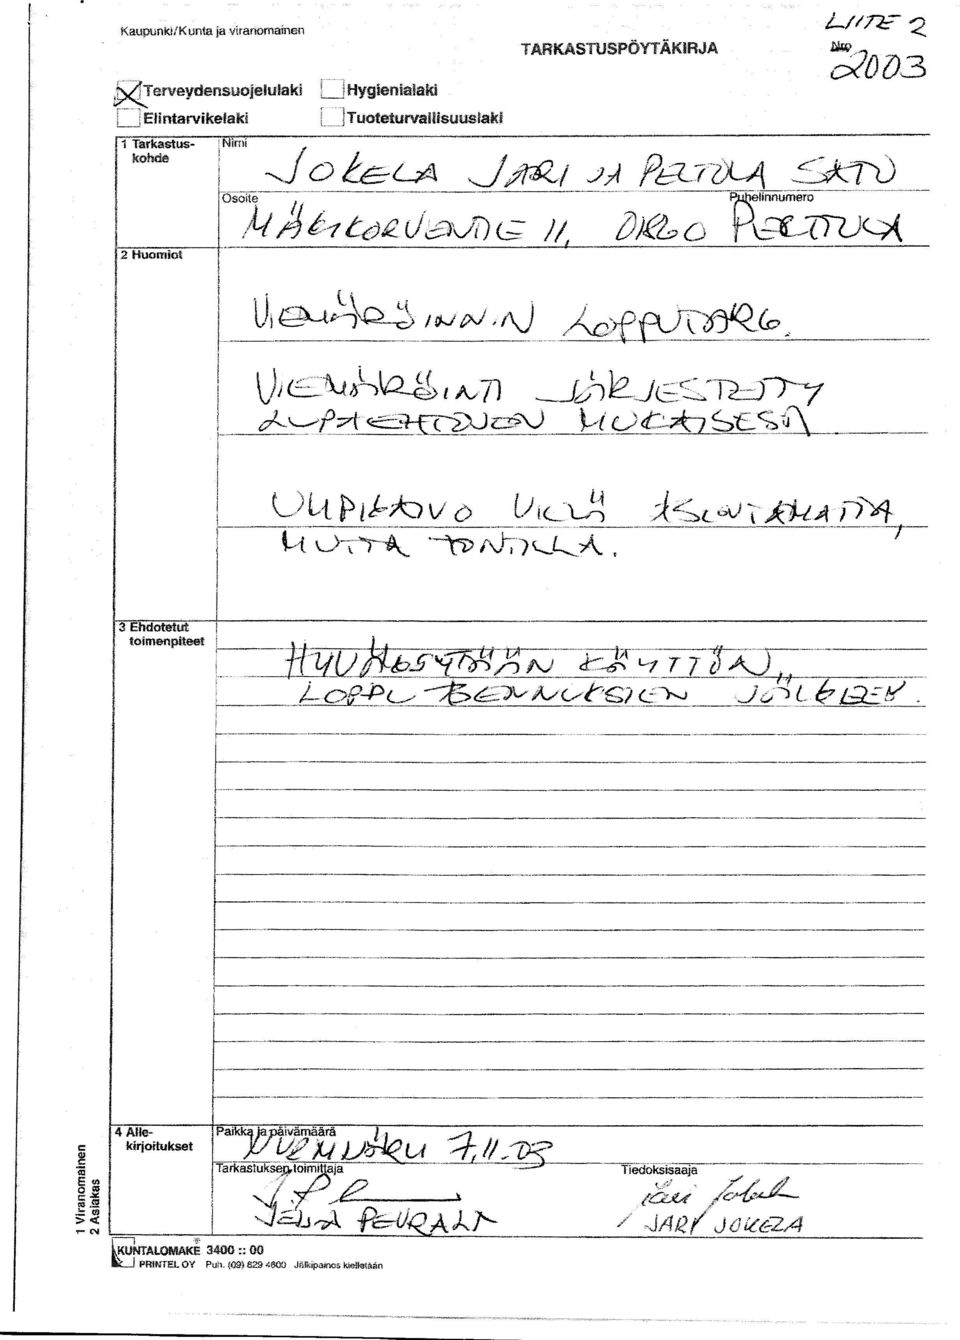 Kaupunki/Kunta ja viranomainen
TARKASTUSPÖYTÄKIRJA
LIITE 2
Nro
2003
Terveydensuojelulaki
Hygienialaki
Elintarvikelaki
Tuoteturvallisuuslaki
1 Tarkastus-
kohde
Nimi
JOKELA JARI JA PELTOLA SATU
Osoite
Puhelinnumero
MÄKIKORVENTIE 11, 01860 PERTTULA
2 Huomiot
VIEMÄRÖINNIN LOPPUTARK.
VIEMÄRÖINTI JÄRJESTETTY
LUPAEHTOJEN MUKAISESTI
UMPIKAIVO VIELÄ ASENTAMATTA,
MUTTA TONTILLA.
3 Ehdotetut
toimenpiteet
HYVÄKSYTÄÄN KÄYTTÖÖN,
LOPPU ASENNUKSIEN JÄLKEEN.
4 Alle-
kirjoitukset
Paikka ja päivämäärä
NURMIJÄRVI 7.11.03
Tarkastuksen toimittaja
Tiedoksisaaja
Jari Jokela
PEURALA
JARI JOKELA
1 Viranomainen
2 Asiakas
KUNTALOMAKE 3400 :: 00
PRINTEL OY Puh. (09) 829 4600 Jälkipainos kielletään